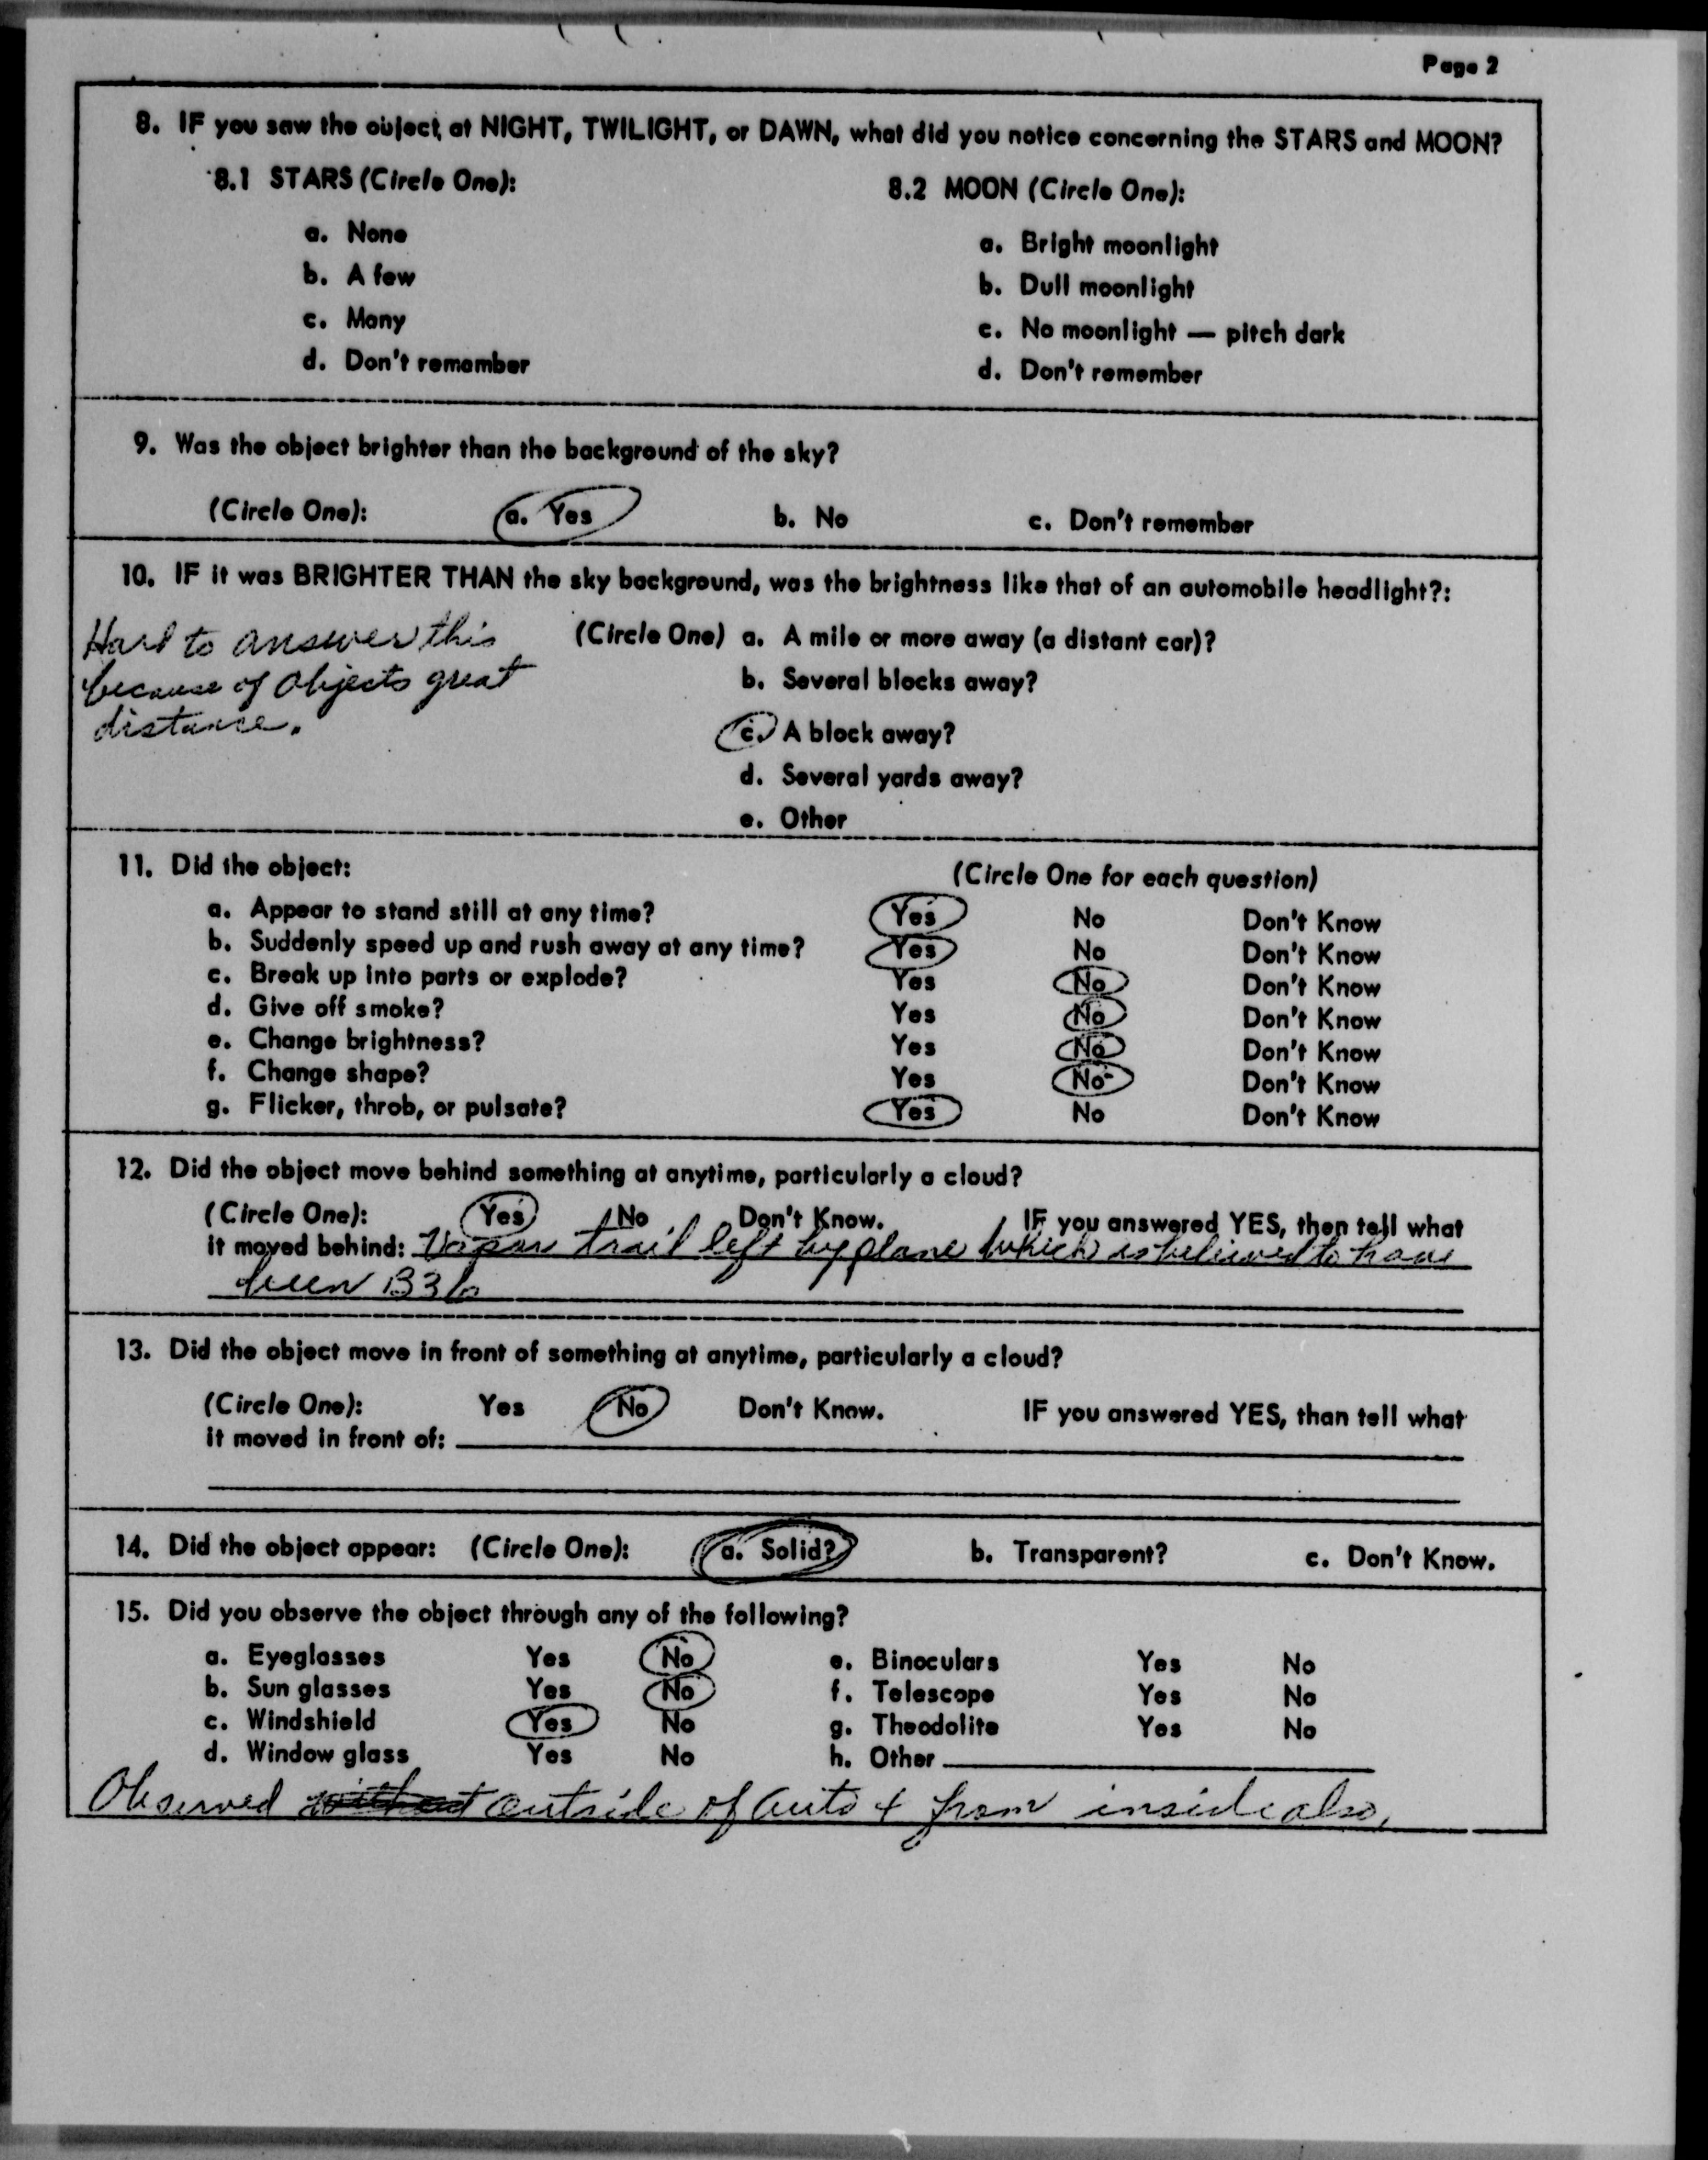 Page 2
8. IF you saw the object, at NIGHT, TWILIGHT, or DAWN, what did you notice concerning the STARS and MOON?
8.1 STARS (Circle One): 8.2 MOON (Circle One):
a. None a. Bright moonlight
b. A few b. Dull moonlight
c. Many c. No moonlight — pitch dark
d. Don't remember d. Don't remember
9. Was the object brighter than the background of the sky?
(Circle One): a. Yes b. No c. Don't remember
10. IF it was BRIGHTER THAN the sky background, was the brightness like that of an automobile headlight?:
Hard to answer this (Circle One) a. A mile or more away (a distant car)?
because of objects great b. Several blocks away?
distance. c. A block away?
d. Several yards away?
e. Other
11. Did the object: (Circle One for each question)
a. Appear to stand still at any time? Yes No Don't Know
b. Suddenly speed up and rush away at any time? Yes No Don't Know
c. Break up into parts or explode? Yes No Don't Know
d. Give off smoke? Yes No Don't Know
e. Change brightness? Yes No Don't Know
f. Change shape? Yes No Don't Know
g. Flicker, throb, or pulsate? Yes No Don't Know
12. Did the object move behind something at anytime, particularly a cloud?
(Circle One): Yes No Don't Know. IF you answered YES, then tell what
it moved behind: Vapor trail left by plane which is believed to have
been B36
13. Did the object move in front of something at anytime, particularly a cloud?
(Circle One): Yes No Don't Know. IF you answered YES, than tell what
it moved in front of:
14. Did the object appear: (Circle One): a. Solid? b. Transparent? c. Don't Know.
15. Did you observe the object through any of the following?
a. Eyeglasses Yes No e. Binoculars Yes No
b. Sun glasses Yes No f. Telescope Yes No
c. Windshield Yes No g. Theodolite Yes No
d. Window glass Yes No h. Other
Observed without outside of auto + from inside also,